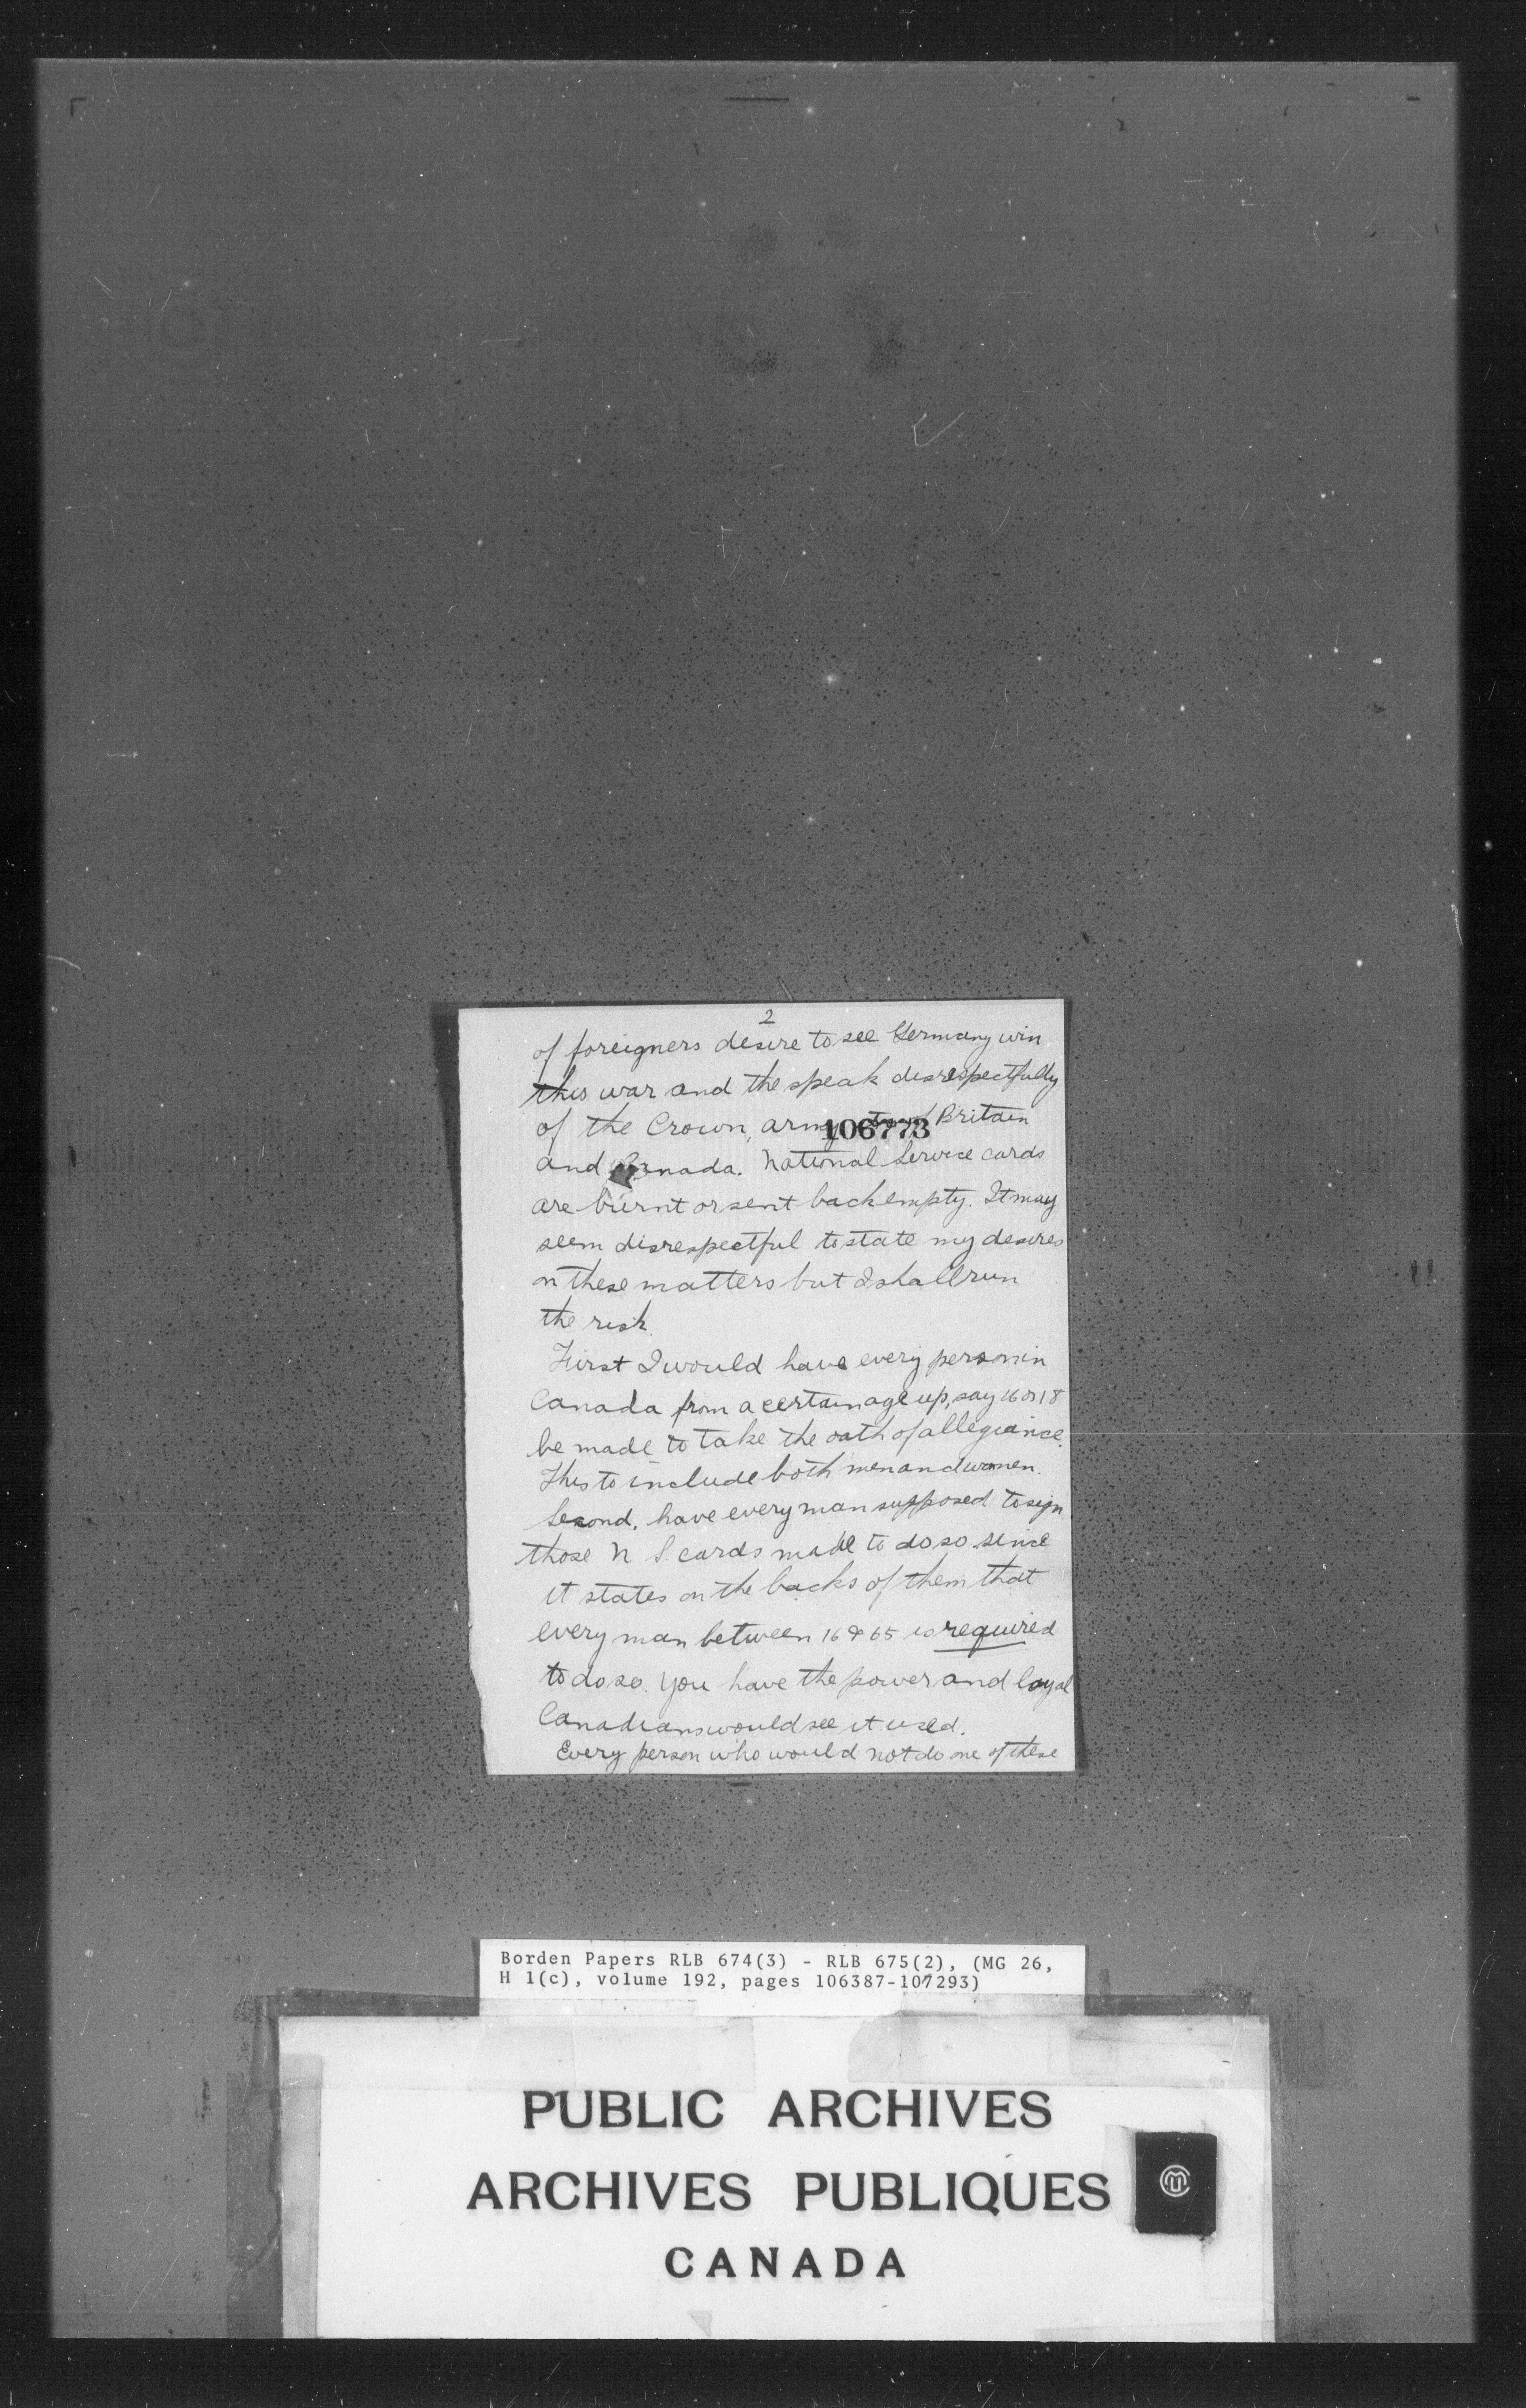 2
of foreigners desire to see Germany win
this war and the speak disrespectfully
of the Crown, army Britain
106773
and Canada. National Service cards
are burnt or sent back empty. It may
seem disrespectful to state my desires
on these matters but I shall run
the risk.
First I would have every person in
Canada from a certain age up, say 16 or 18
be made to take the oath of allegiance.
This to include both men and women.
Second, have every man supposed to sign
those N S. cards made to do so since
it states on the backs of them that
every man between 16 & 65 is required
to do so. You have the power and loyal
Canadians would see it used.
Every person who would not do one of these
Borden Papers RLB 674(3) - RLB 675(2), (MG 26,
H 1(c), volume 192, pages 106387-107293)
PUBLIC ARCHIVES
ARCHIVES PUBLIQUES
CANADA